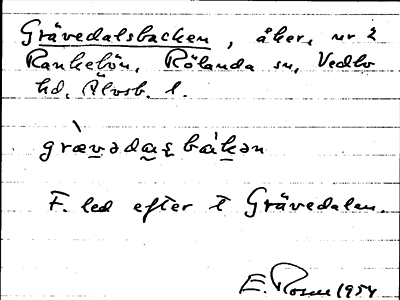 Grävedalsbacken, åker, nr 2
Rankebön, Rölanda sn, Vedbo
hd, Älvsb. l.
grævədas bakən
F. led efter t Grävedalen.
E. Rosen 1954